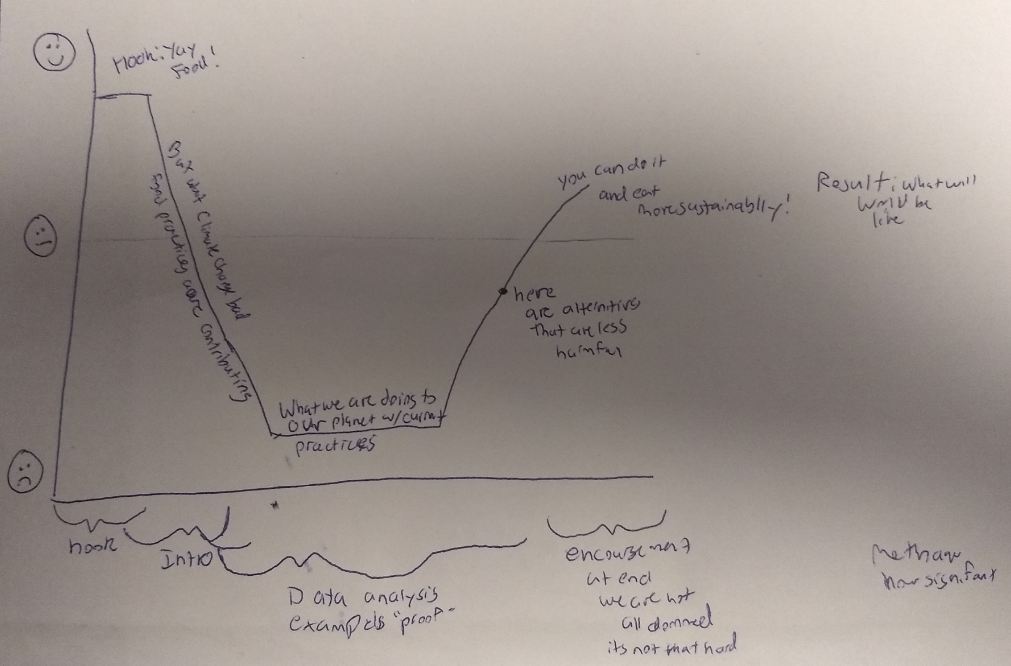 Hook: Yay
Food!
But wait Climate change bad
food practices are contributing
What we are doing to
our planet w/ current
practices
you can do it
and eat
more sustainably!
here
are alternitives
that are less
harmful
Result: what will
world be
like
hook
Intro
Data analysis
examples "proof"
encouragement
at end
we are not
all doomed
its not that hard
Methane
how significant